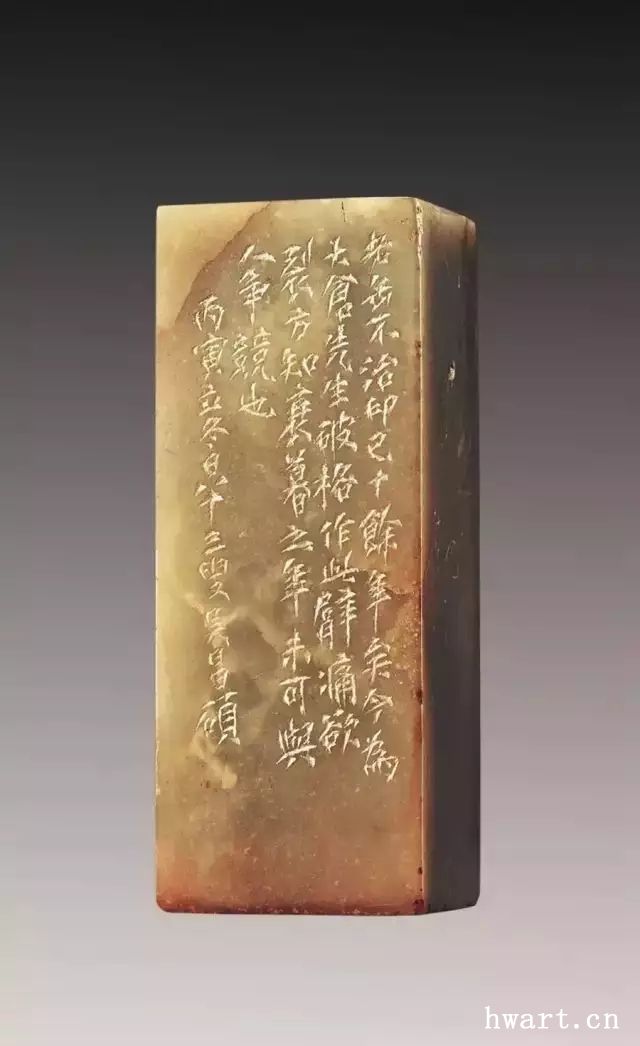 老缶不治印已十餘年矣今為
大倉先生破格作此臂痛欲
裂方知衰暮之年未可與
人爭競也
丙寅立冬日年三叟吳昌碩
hwart.cn